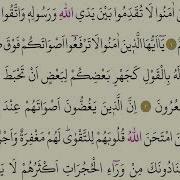 ءَامَنُوا۟ لَا تُقَدِّمُوا۟ بَيْنَ يَدَيِ ٱللَّهِ وَرَسُولِهِۦ وَٱتَّقُوا۟
يَـٰٓأَيُّهَا ٱلَّذِينَ ءَامَنُوا۟ لَا تَرْفَعُوٓا۟ أَصْوَٰتَكُمْ فَوْقَ
لَهُۥ بِٱلْقَوْلِ كَجَهْرِ بَعْضِكُمْ لِبَعْضٍ أَن تَحْبَطَ
إِنَّ ٱلَّذِينَ يَغُضُّونَ أَصْوَٰتَهُمْ عِندَ
ٱمْتَحَنَ ٱللَّهُ قُلُوبَهُمْ لِلتَّقْوَىٰ لَهُم مَّغْفِرَةٌ وَأَجْرٌ
يُنَادُونَكَ مِن وَرَآءِ ٱلْحُجُرَٰتِ أَكْثَرُهُمْ لَا